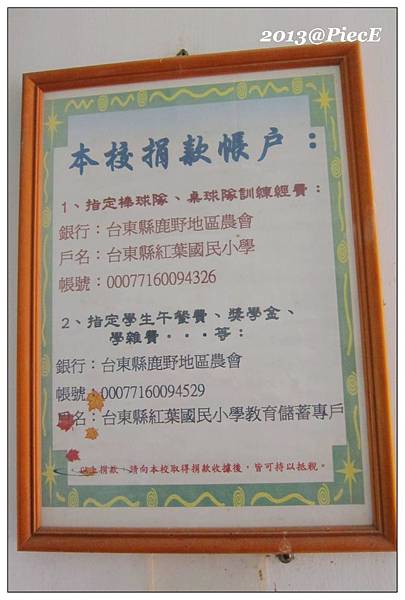 2013@PiecE
本校捐款帳户：
1、指定棒球隊、桌球隊訓練經費：
銀行：台東縣鹿野地區農會
戶名：台東縣紅葉國民小學
帳號：00077160094326
2、指定學生午餐費、獎學金、
學雜費・・・等：
銀行：台東縣鹿野地區農會
帳號：00077160094529
戶名：台東縣紅葉國民小學教育儲蓄專戶
，以上捐款，請向本校取得捐款收據後，皆可持以抵稅。